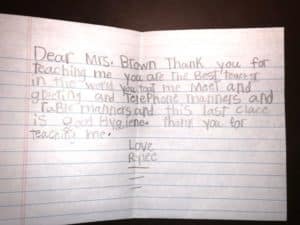 Dear Mrs. Brown Thank you for
teaching me you are the Best teacher
in the world you tot me Meet and
greeting and TelePhone manners and
Table manners and this last clace
is good Hygiene. Thank you for
teaching me.
Love